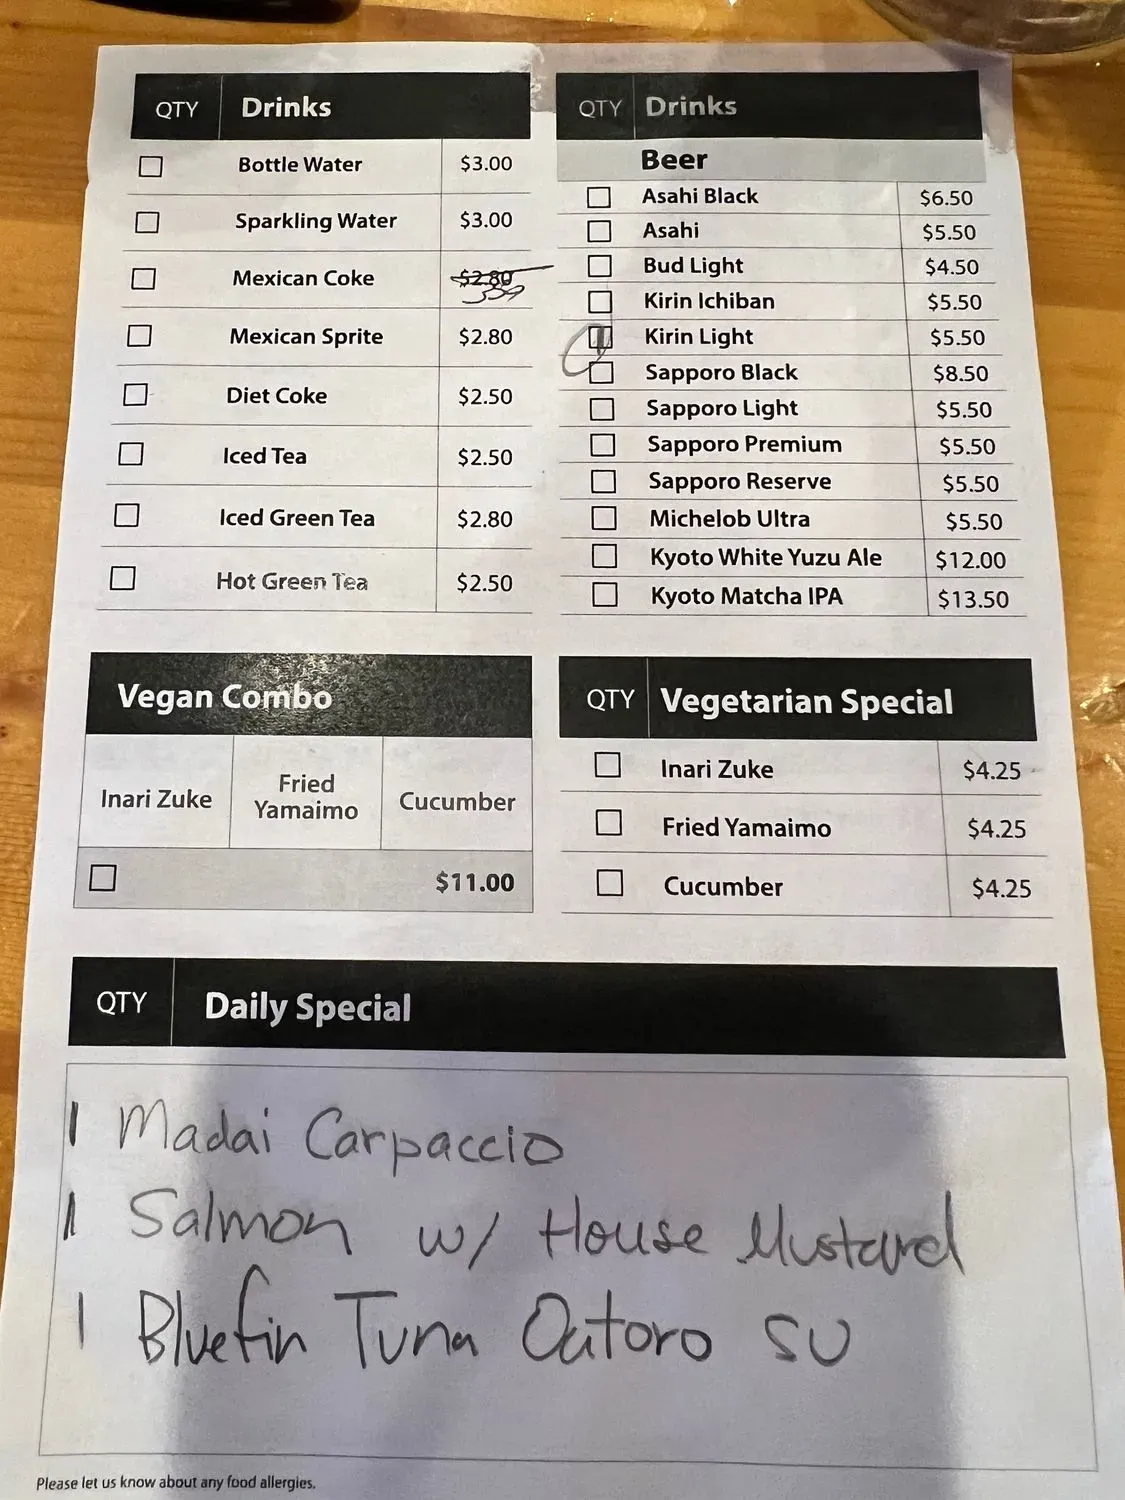 QTY Drinks
Bottle Water $3.00
Sparkling Water $3.00
Mexican Coke $2.80
Mexican Sprite $2.80
Diet Coke $2.50
Iced Tea $2.50
Iced Green Tea $2.80
Hot Green Tea $2.50
QTY Drinks
Beer
Asahi Black $6.50
Asahi $5.50
Bud Light $4.50
Kirin Ichiban $5.50
Kirin Light $5.50
Sapporo Black $8.50
Sapporo Light $5.50
Sapporo Premium $5.50
Sapporo Reserve $5.50
Michelob Ultra $5.50
Kyoto White Yuzu Ale $12.00
Kyoto Matcha IPA $13.50
Vegan Combo
Inari Zuke
Fried
Yamaimo
Cucumber
$11.00
QTY Vegetarian Special
Inari Zuke $4.25
Fried Yamaimo $4.25
Cucumber $4.25
QTY Daily Special
1 Madai Carpaccio
1 Salmon w/ House Mustard
1 Bluefin Tuna Outoro SU
Please let us know about any food allergies.